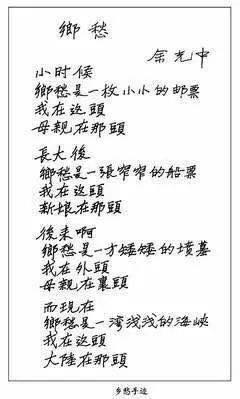 鄉愁
余光中
小时候
鄉愁是一枚小小的邮票
我在这頭
母親在那頭
長大後
鄉愁是一張窄窄的船票
我在这頭
新娘在那頭
後来啊
鄉愁是一方矮矮的墳墓
我在外頭
母親在裏頭
而現在
鄉愁是一湾浅浅的海峡
我在这頭
大陸在那頭
乡愁手迹